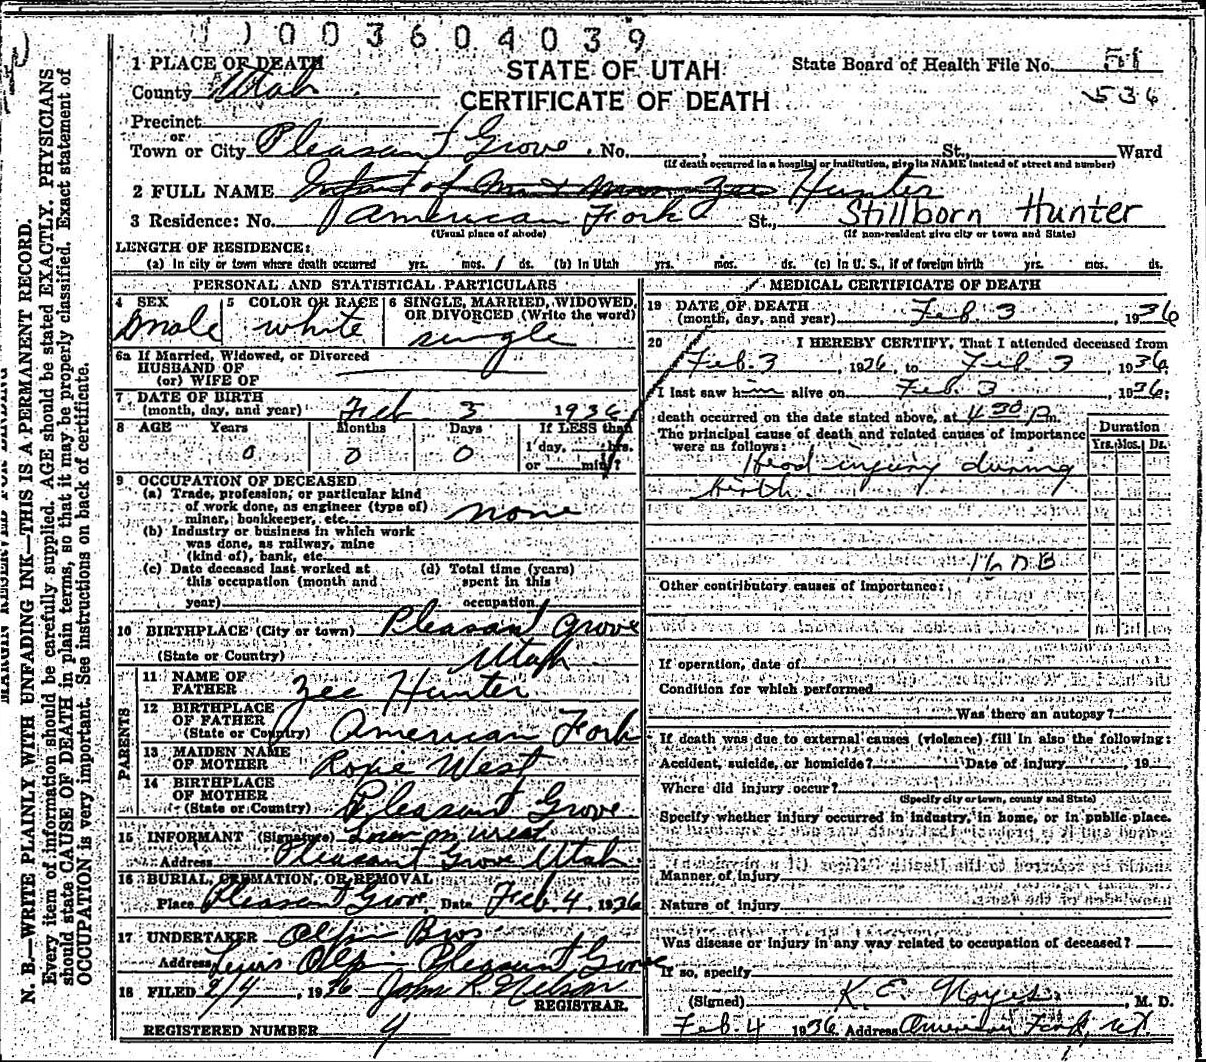 003604039
1 PLACE OF DEATH
STATE OF UTAH
State Board of Health File No. 51
County Utah
CERTIFICATE OF DEATH
536
Precinct
or
Town or City Pleasant Grove. No. , St., Ward
(If death occurred in a hospital or institution, give its NAME instead of street and number)
2 FULL NAME Infant of Mr & Mrs Zee Hunter
3 Residence: No. American Fork St., Stillborn Hunter
(Usual place of abode) (If non-resident give city or town and State)
LENGTH OF RESIDENCE:
(a) In city or town where death occurred yrs. mos. ds. (b) In Utah yrs. mos. ds. (c) In U. S., if of foreign birth yrs. mos. ds.
PERSONAL AND STATISTICAL PARTICULARS
4 SEX male
5 COLOR OR RACE white
6 SINGLE, MARRIED, WIDOWED, OR DIVORCED (Write the word)
single
6a If Married, Widowed, or Divorced
HUSBAND OF
(or) WIFE OF
7 DATE OF BIRTH
(month, day, and year) Feb 3 1936
8 AGE Years Months Days If LESS than
0 0 0 1 day, hrs.
or min.?
9 OCCUPATION OF DECEASED
(a) Trade, profession, or particular kind
of work done, as engineer (type of)
miner, bookkeeper, etc. none
(b) Industry or business in which work
was done, as railway, mine
(kind of), bank, etc.
(c) Date deceased last worked at
this occupation (month and
year)
(d) Total time (years)
spent in this
occupation
10 BIRTHPLACE (City or town) Pleasant Grove
(State or Country) Utah
PARENTS
11 NAME OF
FATHER Zee Hunter
12 BIRTHPLACE
OF FATHER
(State or Country) American Fork
13 MAIDEN NAME
OF MOTHER West
14 BIRTHPLACE
OF MOTHER
(State or Country) Pleasant Grove
15 INFORMANT (Signature)
Address Pleasant Grove Utah
16 BURIAL, CREMATION, OR REMOVAL
Place Pleasant Grove Date Feb. 4, 1936
17 UNDERTAKER Olpin Bros
Address Olpin Pleasant Grove
18 FILED 2/4, 1936 John R. Nelson
REGISTRAR.
REGISTERED NUMBER 4
MEDICAL CERTIFICATE OF DEATH
19 DATE OF DEATH
(month, day, and year) Feb. 3, 1936
20 I HEREBY CERTIFY, That I attended deceased from
Feb. 3, 1936, to Feb. 3, 1936
I last saw him alive on Feb. 3, 1936;
death occurred on the date stated above, at 4 30 P.m.
The principal cause of death and related causes of importance
were as follows:
Duration
Yrs. Mos. Ds.
Head injury during
birth
Other contributory causes of importance:
If operation, date of
Condition for which performed
Was there an autopsy?
If death was due to external causes (violence) fill in also the following:
Accident, suicide, or homicide? Date of injury , 19
Where did injury occur?
(Specify city or town, county and State)
Specify whether injury occurred in industry, in home, or in public place.
Manner of injury
Nature of injury
Was disease or injury in any way related to occupation of deceased?
If so, specify
(Signed) K. E. Noyes, M. D.
Feb. 4 1936 Address American Fork, Ut.
N. B.—WRITE PLAINLY WITH UNFADING INK—THIS IS A PERMANENT RECORD.
Every item of information should be carefully supplied. AGE should be stated EXACTLY. PHYSICIANS
should state CAUSE OF DEATH in plain terms, so that it may be properly classified. Exact statement of
OCCUPATION is very important. See instructions on back of certificate.